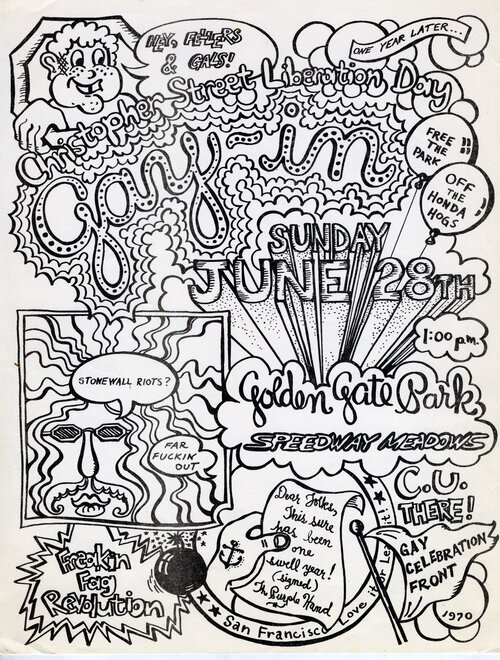 HEY, FELLERS
& GALS!
ONE YEAR LATER...
Christopher Street Liberation Day
gay-in
FREE
THE
PARK
!!
OFF
THE
HONDA
HOGS
SUNDAY
JUNE 28TH
1:00 p.m.
Golden Gate Park
SPEEDWAY MEADOWS
STONEWALL RIOTS?
FAR
FUCKIN'
OUT
C.U.
THERE!
Dear folks,
This sure
has been
one
swell year!
(signed)
The Purple Hand
GAY
CELEBRATION
FRONT
1970
Freakin
Fag
Revolution
San Francisco Love it or Leave it!